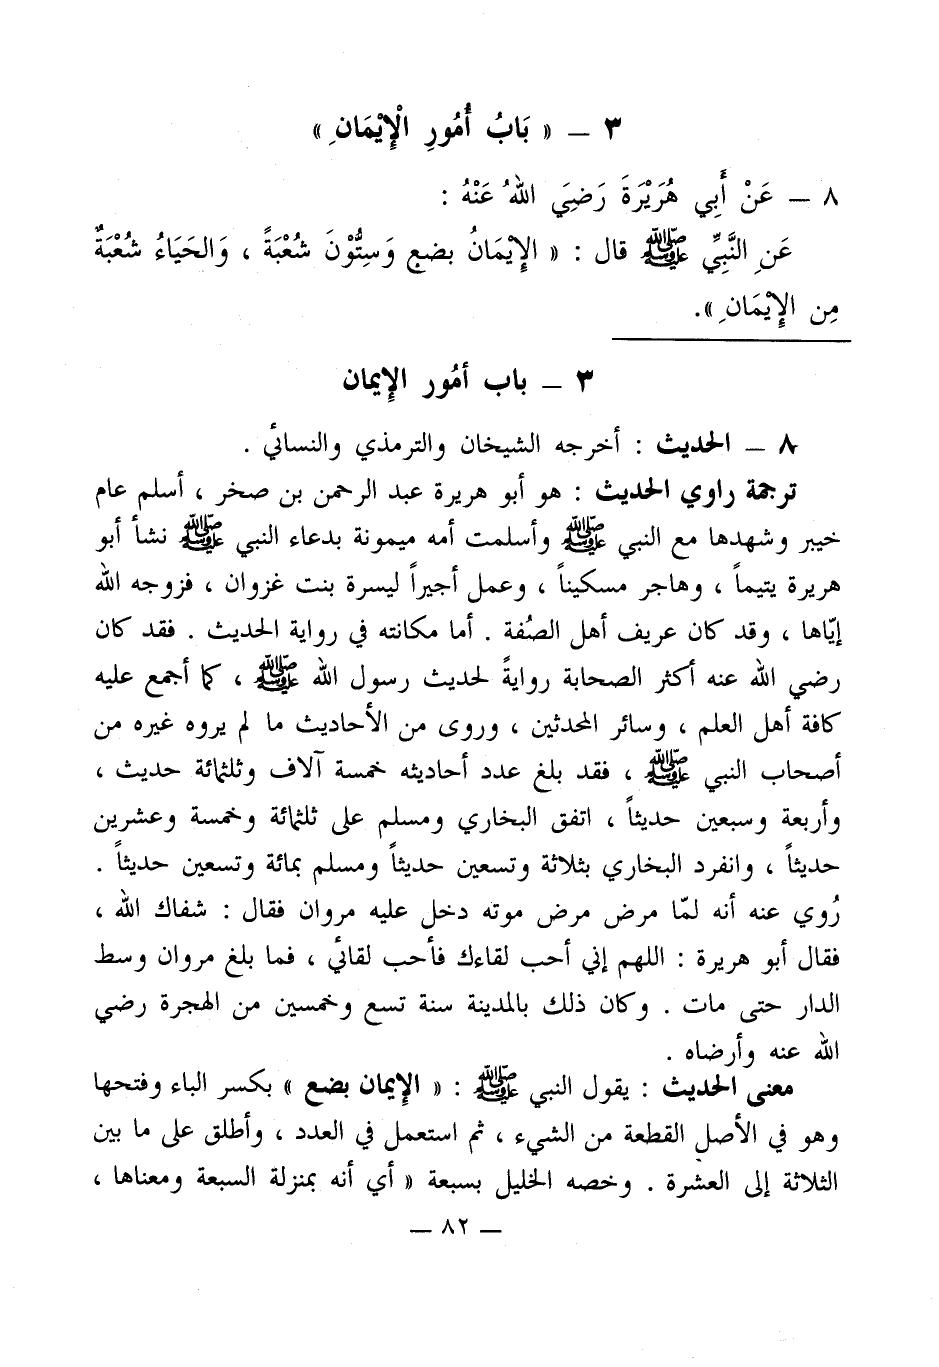 ٣ – « بَابُ أُمُورِ الْإِيْمَانِ »
٨ – عَنْ أَبِي هُرَيْرَةَ رَضِيَ اللهُ عَنْهُ :
عَنِ النَّبِيِّ ﷺ قال : « الإِيْمَانُ بضع وَسِتُّوْنَ شُعْبَةً ، وَالحَيَاءُ شُعْبَةٌ
مِن الإِيْمَانِ ».
٣ – باب أمُور الإيمان
٨ – الحديث : أخرجه الشيخان والترمذي والنسائي .
ترجمة راوي الحديث : هو أبو هريرة عبد الرحمن بن صخر ، أسلم عام
خيبر وشهدها مع النبي ﷺ وأسلمت أمه ميمونة بدعاء النبي ﷺ نشأ أبو
هريرة يتيماً ، وهاجر مسكيناً ، وعمل أجيراً ليسرة بنت غزوان ، فزوجه الله
إيّاها ، وقد كان عريف أهل الصُفة . أما مكانته في رواية الحديث . فقد كان
رضي الله عنه أكثر الصحابة روايةً لحديث رسول الله ﷺ ، كما أجمع عليه
كافة أهل العلم ، وسائر المحدثين ، وروى من الأحاديث ما لم يروه غيره من
أصحاب النبي ﷺ ، فقد بلغ عدد أحاديثه خمسة آلاف وثلثمائة حديث ،
وأربعة وسبعين حديثاً ، اتفق البخاري ومسلم على ثلثمائة وخمسة وعشرين
حديثاً ، وانفرد البخاري بثلاثة وتسعين حديثاً ومسلم بمائة وتسعين حديثاً .
رُوي عنه أنه لمّا مرض مرض موته دخل عليه مروان فقال : شفاك الله ،
فقال أبو هريرة : اللهم إني أحب لقاءك فأحب لقائي ، فما بلغ مروان وسط
الدار حتى مات . وكان ذلك بالمدينة سنة تسع وخمسين من الهجرة رضي
الله عنه وأرضاه .
معنى الحديث : يقول النبي ﷺ : « الإيمان بضع » بكسر الباء وفتحها
وهو في الأصل القطعة من الشيء ، ثم استعمل في العدد ، وأطلق على ما بين
الثلاثة إلى العشرة . وخصه الخليل بسبعة « أي أنه بمنزلة السبعة ومعناها ،
– ٨٢ –